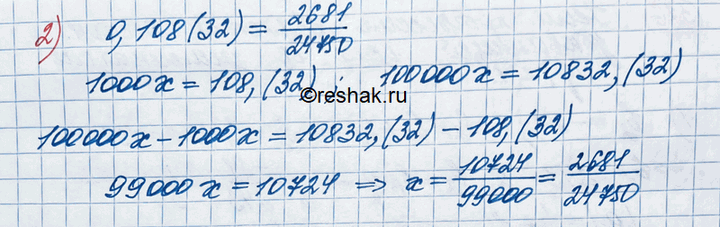 2) 0,108(32) = 2681/24750
1000x = 108,(32) ; 100000x = 10832,(32)
©reshak.ru
100000x - 1000x = 10832,(32) - 108,(32)
99000x = 10724 ⇒ x = 10724/99000 = 2681/24750